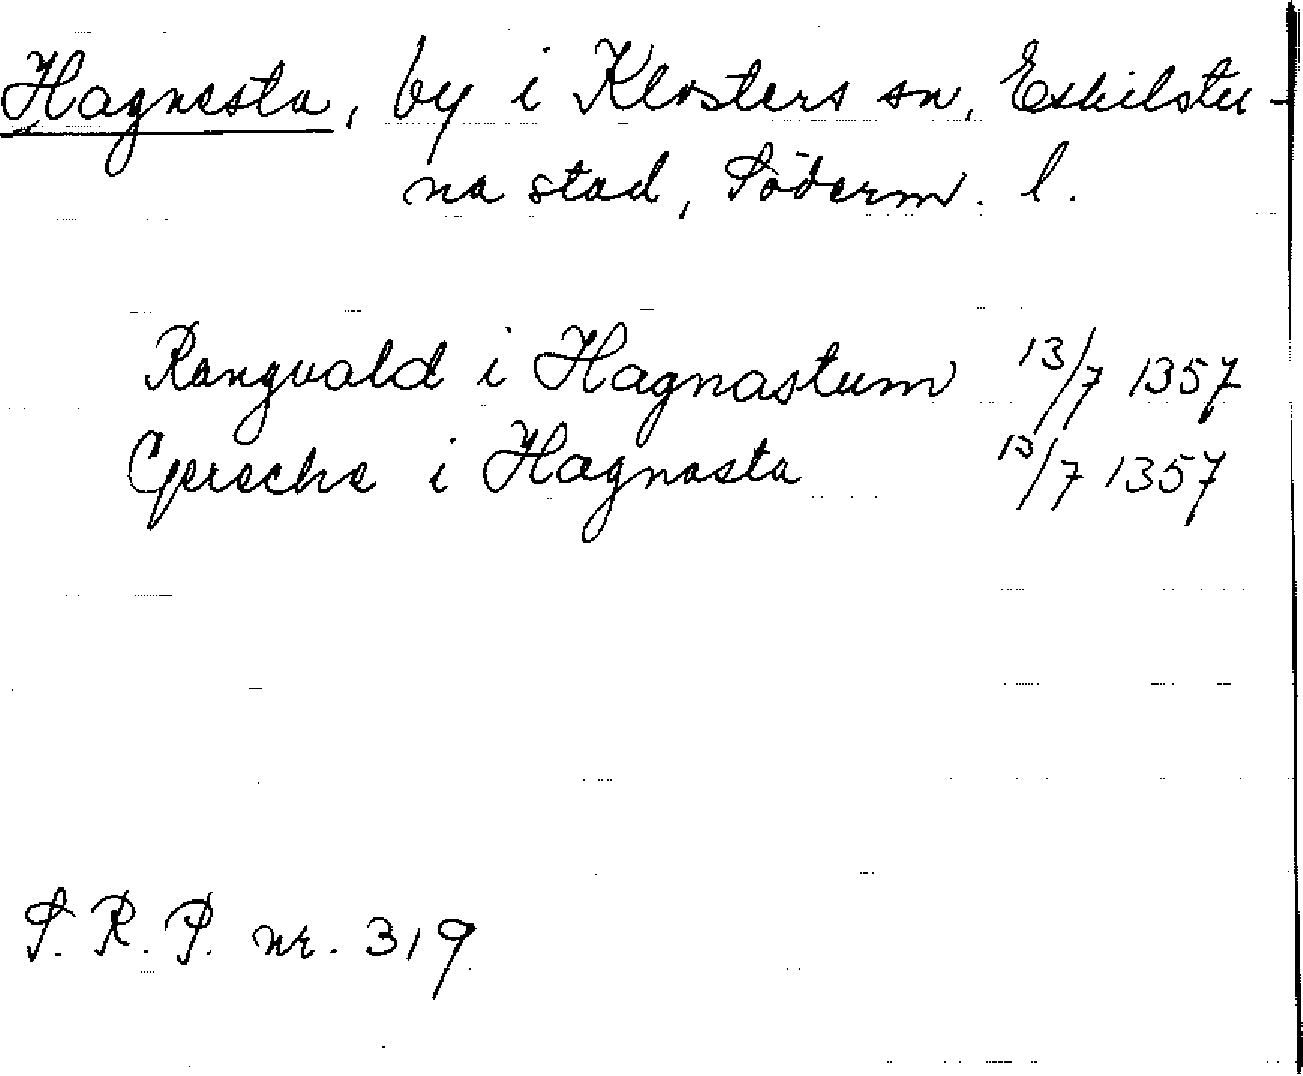 Hagnesta, by i Klosters sn, Eskilstu-
na stad, Söderm. l.
Rangvald i Hagnastum 13/7 1357
Gereche i Hagnasta 13/7 1357
S. R. P. nr. 319